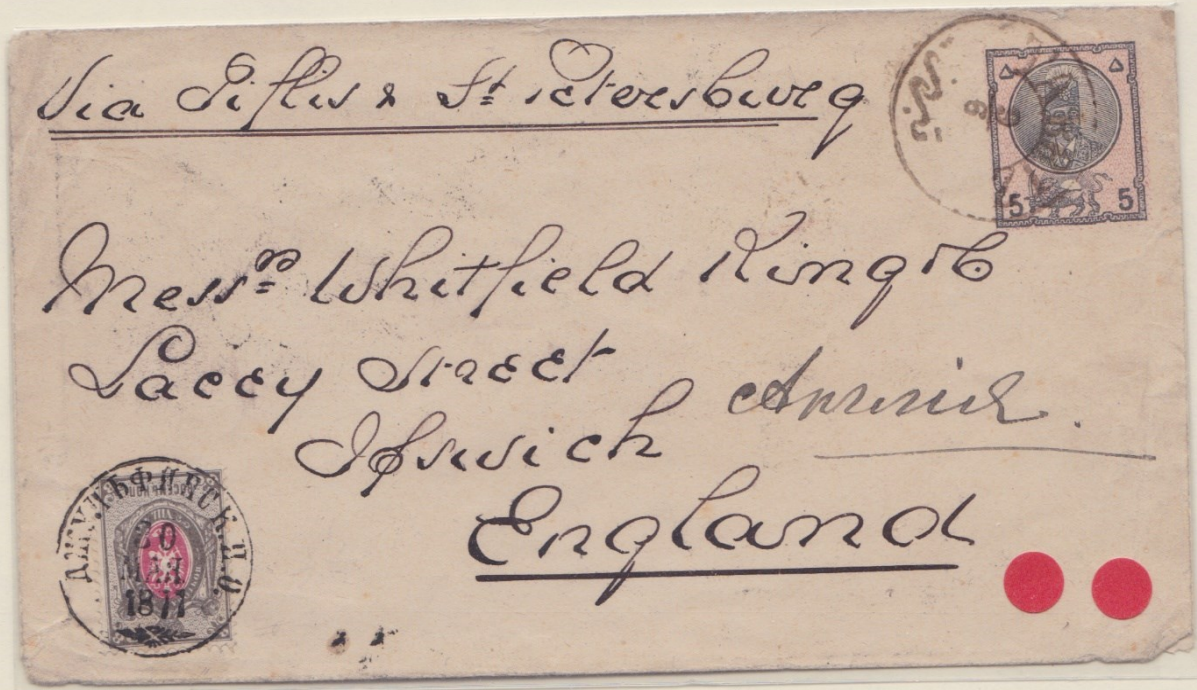 Via Tiflis & St Petersburg
Messrs Whitfield King & Co
Lacey Street
Ipswich
England
5 5
ДЖУЛЬФИНСК. П. О.
20
МАЯ
1877